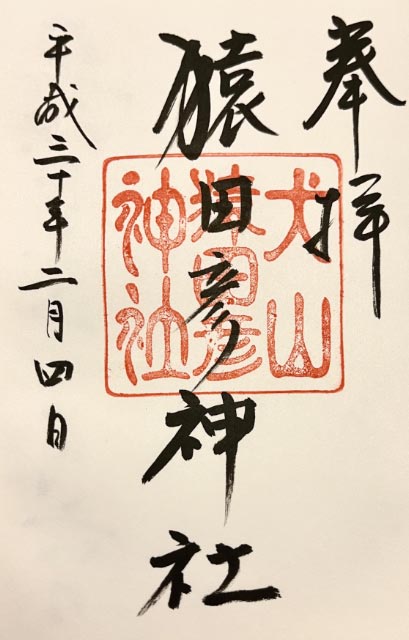 奉拝
猿田彦神社
犬山
猿田彦
神社
平成三十年二月四日